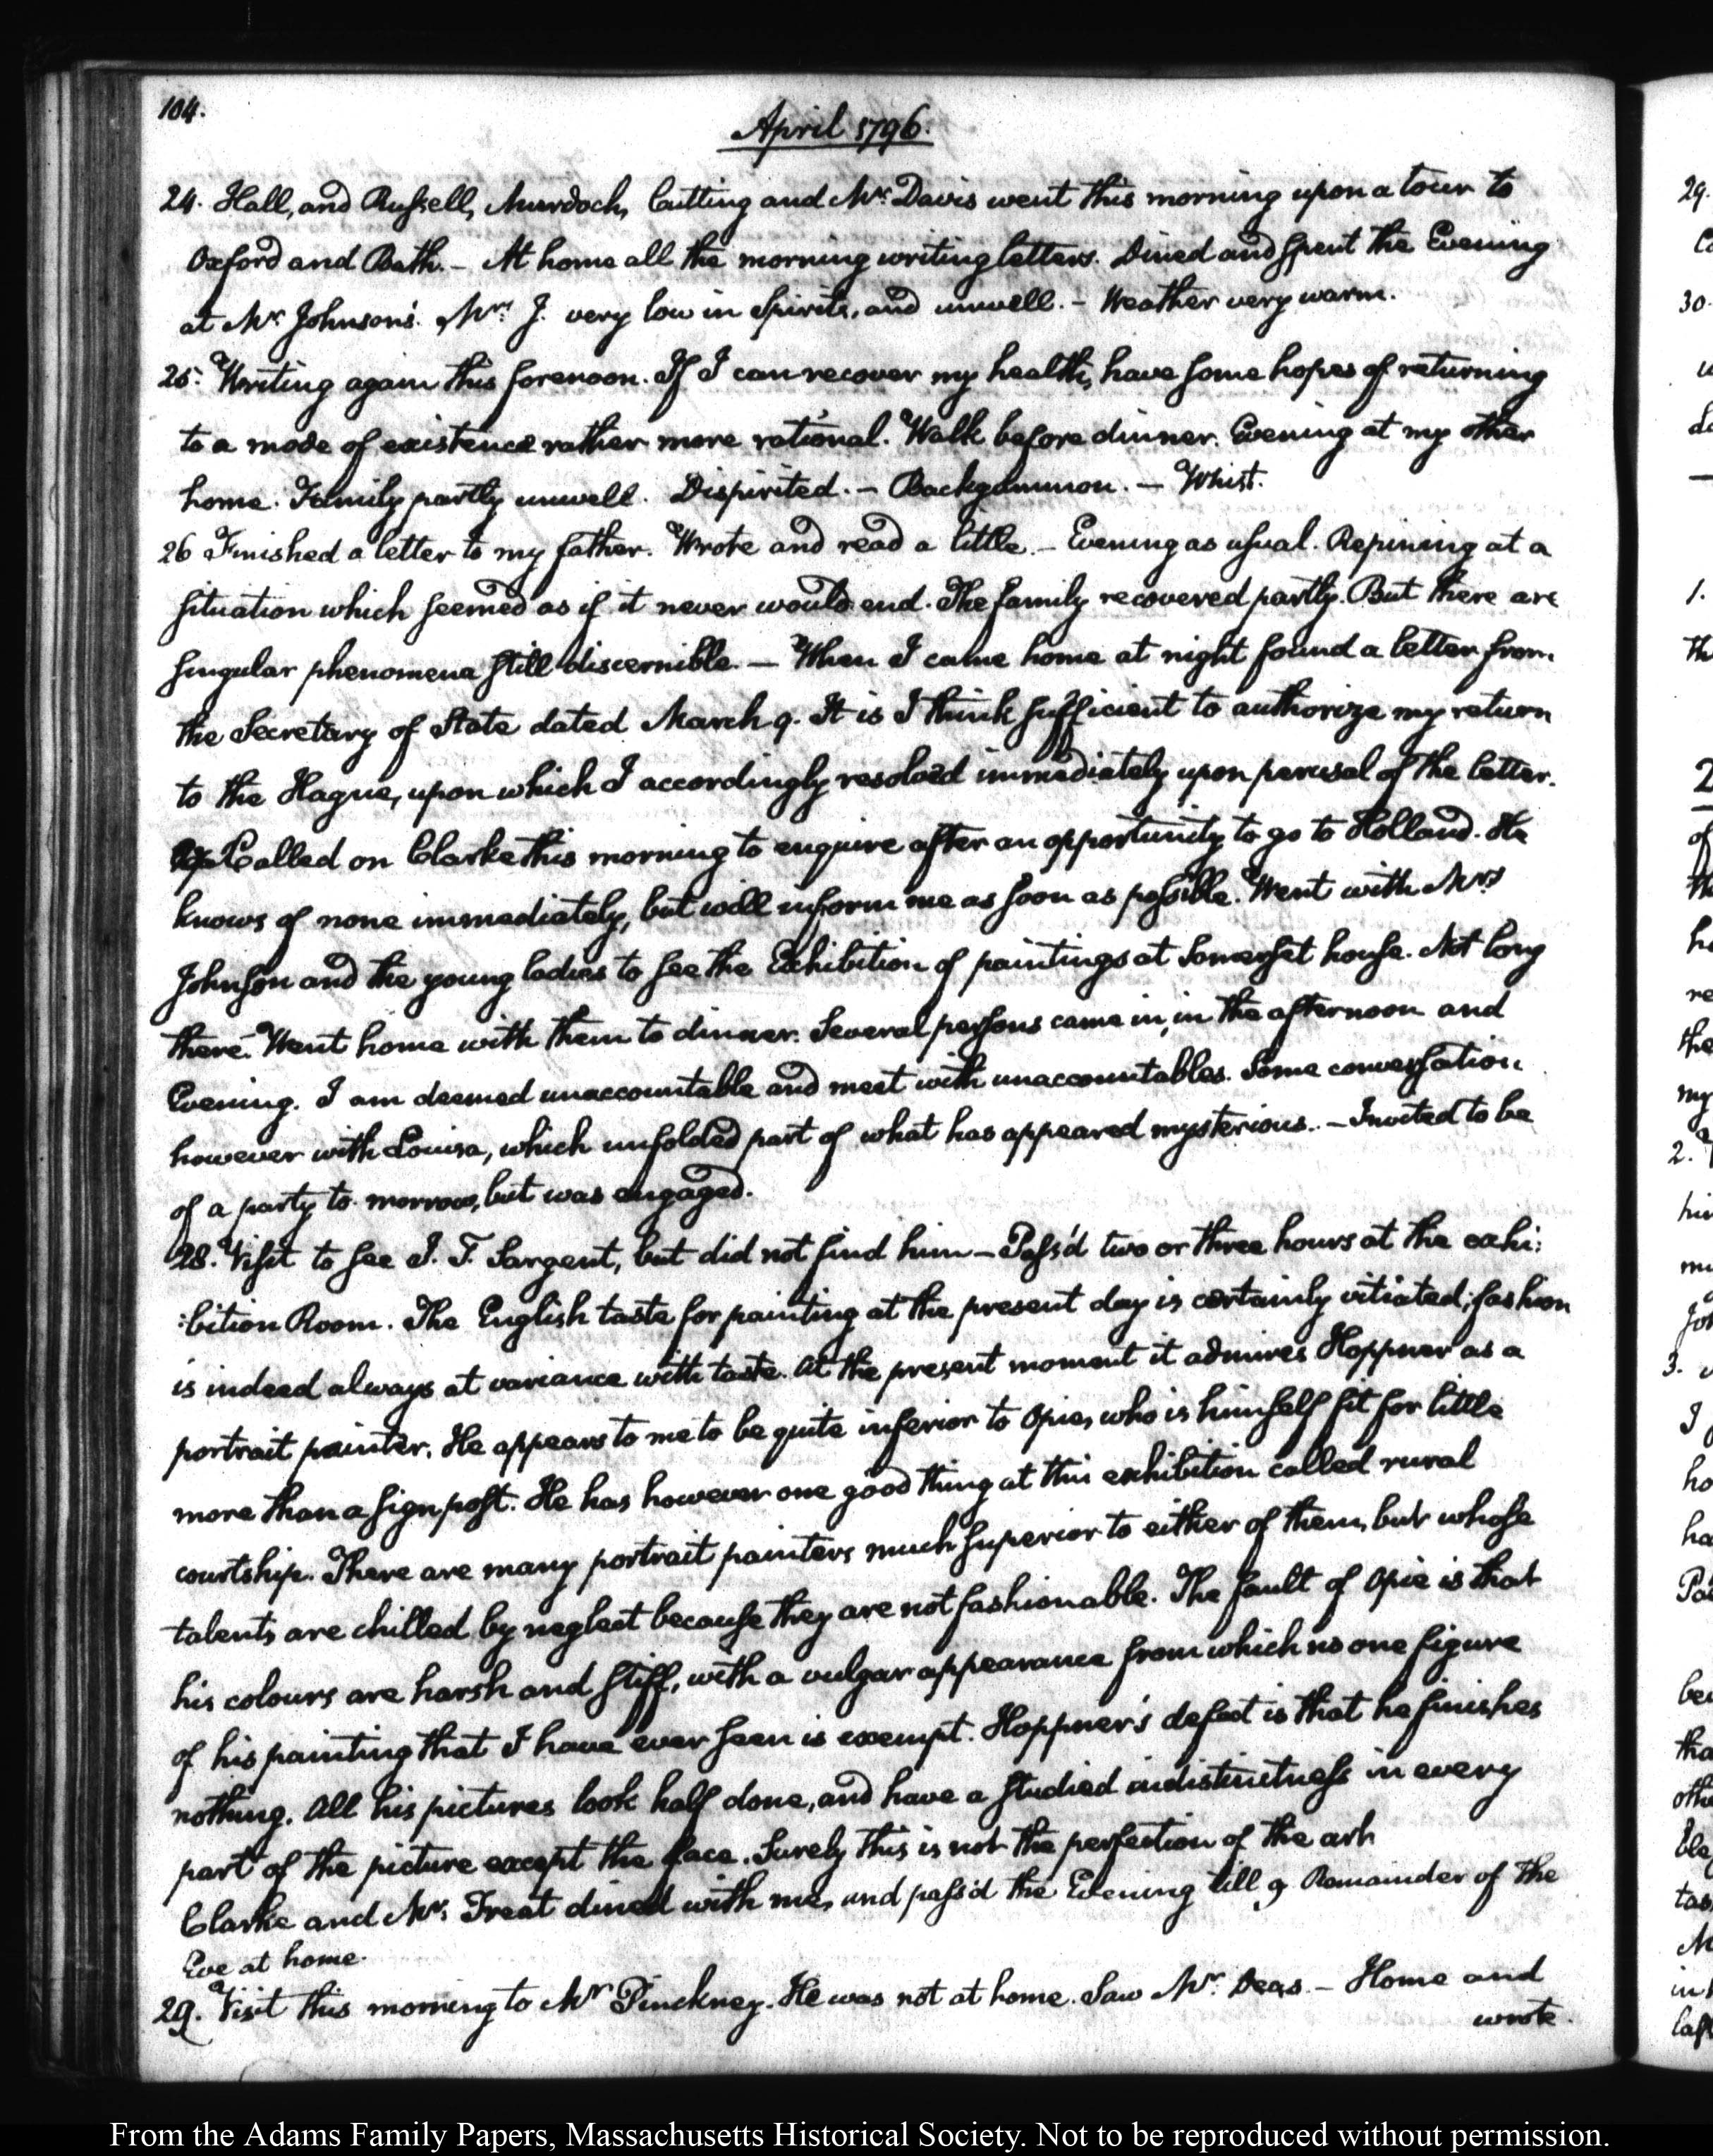 104.
April 1796.
24. Hall, and Russell, Murdoch, Cutting and Mr. Davis went this morning upon a tour to
Oxford and Bath. – At home all the morning writing letters. Dined and spent the Evening
at Mr. Johnson's. Mrs. J. very low in spirits, and unwell. – Weather very warm.
25. Writing again this forenoon. If I can recover my health, have some hopes of returning
to a mode of existence rather more rational. Walk before dinner. Evening at my other
home. Family partly unwell. Dispirited. – Backgammon. – Whist.
26 Finished a letter to my father. Wrote and read a little. – Evening as usual. Repining at a
situation which seemed as if it never would end. The family recovered partly. But there are
singular phenomena still discernible. – When I came home at night found a letter from
the Secretary of State dated March 9. It is I think sufficient to authorize my return
to the Hague, upon which I accordingly resolved immediately upon perusal of the letter.
27. Called on Clarke this morning to enquire after an opportunity to go to Holland. He
knows of none immediately, but will inform me as soon as possible. Went with Mrs
Johnson and the young ladies to see the Exhibition of paintings at Somerset house. Not long
there. Went home with them to dinner. Several persons came in, in the afternoon and
Evening. I am deemed unaccountable and meet with unaccountables. Some conversation
however with Louisa, which unfolded part of what has appeared mysterious. – Invited to be
of a party to-morrow, but was engaged.
28. Visit to see I. T. Sargent, but did not find him – Pass'd two or three hours at the exhi:
:bition Room. The English taste for painting at the present day is certainly vitiated; fashion
is indeed always at variance with taste. At the present moment it admires Hoppner as a
portrait painter. He appears to me to be quite inferior to Opie, who is himself fit for little
more than a sign post. He has however one good thing at this exhibition called rural
courtship. There are many portrait painters much superior to either of them, but whose
talents are chilled by neglect because they are not fashionable. The fault of Opie is that
his colours are harsh and stiff, with a vulgar appearance from which no one figure
of his painting that I have ever seen is exempt. Hoppner's defect is that he finishes
nothing. All his pictures look half done, and have a studied indistinctness in every
part of the picture except the face. Surely this is not the perfection of the art
Clarke and Mr. Treat dined with me, and pass'd the Evening till 9 Remainder of the
Eve at home.
29. Visit this morning to Mr Pinckney. He was not at home. Saw Mr. Deas. – Home and
wrote.
From the Adams Family Papers, Massachusetts Historical Society. Not to be reproduced without permission.